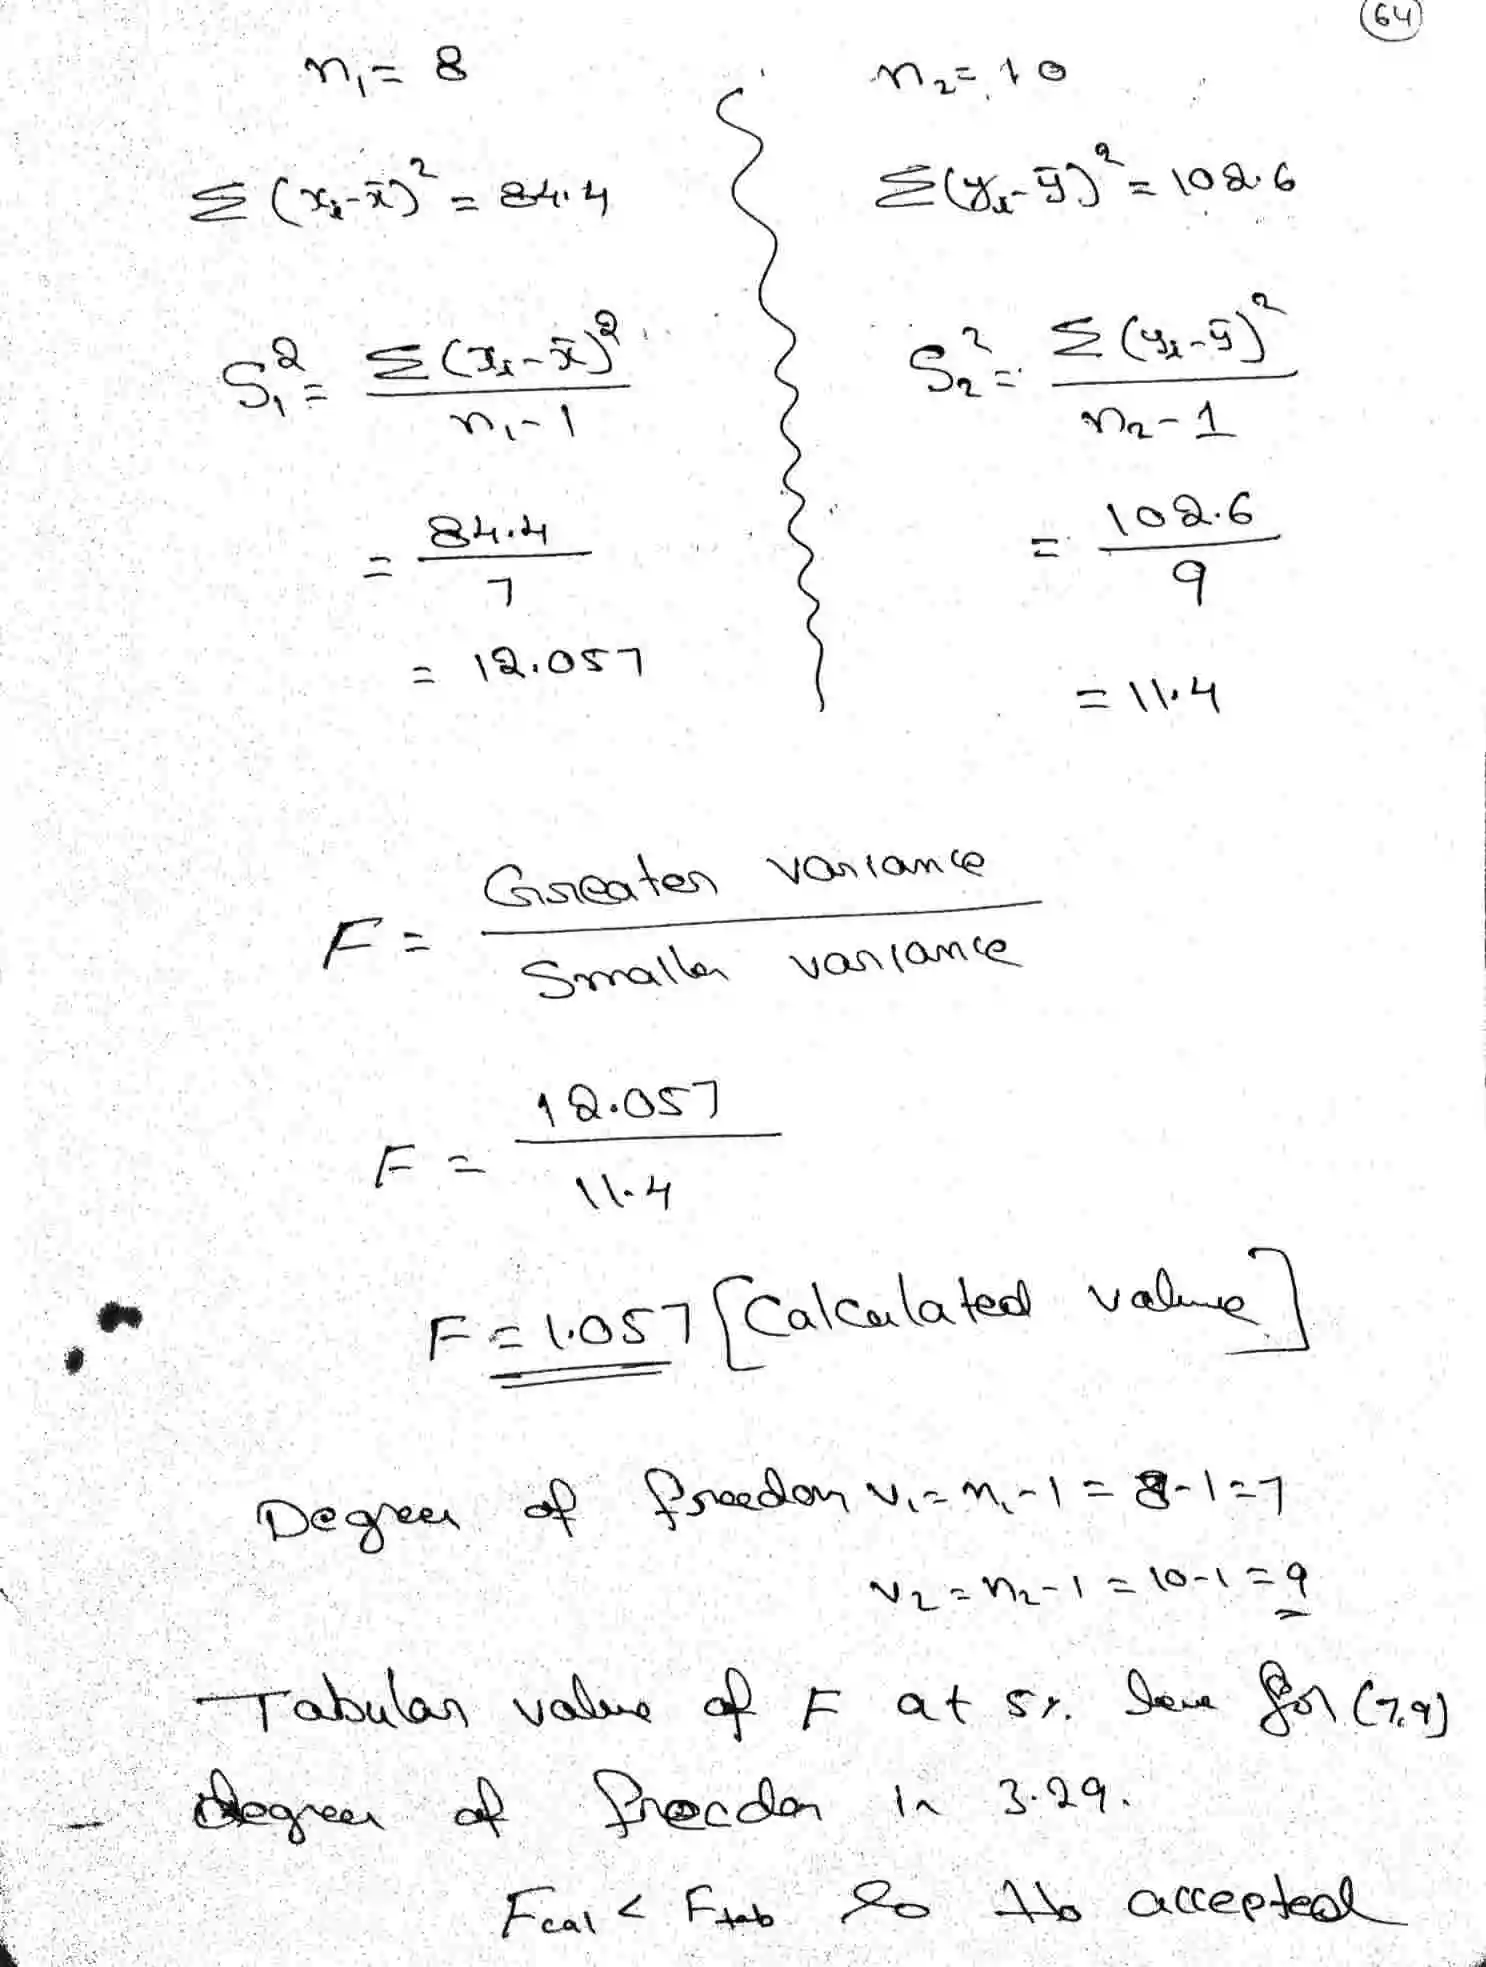 64
n₁ = 8
Σ(xᵢ-x̄)² = 84.4
S₁² = Σ(xᵢ-x̄)² / n₁-1
= 84.4 / 7
= 12.057
n₂ = 10
Σ(yᵢ-ȳ)² = 102.6
S₂² = Σ(yᵢ-ȳ)² / n₂-1
= 102.6 / 9
= 11.4
F = Greater variance / Smaller variance
F = 12.057 / 11.4
F = 1.057 [Calculated value]
Degree of freedom v₁ = n₁-1 = 8-1=7
v₂ = n₂-1 = 10-1 = 9
Tabular value of F at 5% for (7,9)
degree of freedom is 3.29.
Fcal < Ftab So Ho accepted